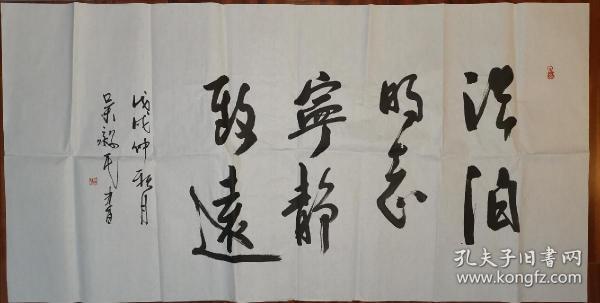 淡泊
明志
寧静
致遠
戊戌仲秋月
吴毅民書
孔夫子旧书网
www.kongfz.com